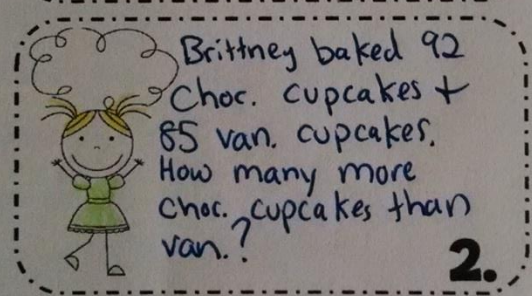 Brittney baked 92
Choc. cupcakes +
85 van. cupcakes.
How many more
choc. cupcakes than
van.?
2.